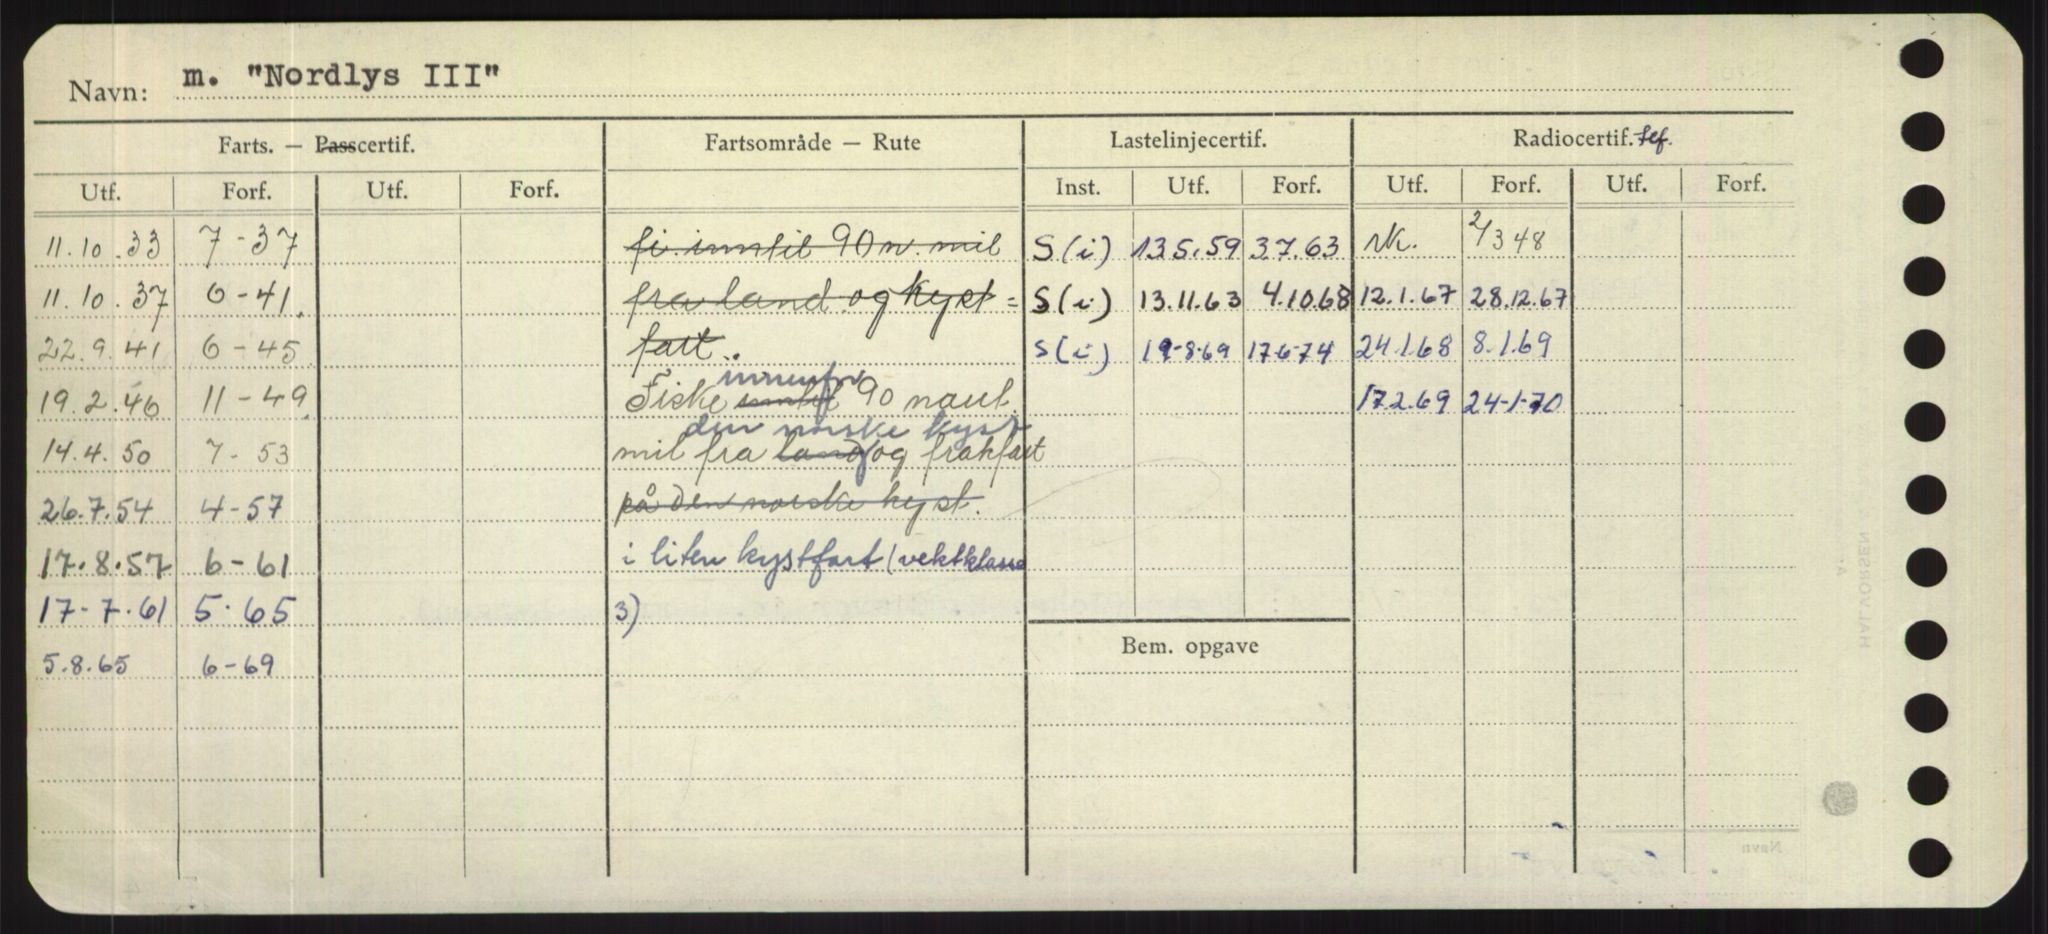 Navn: m. "Nordlys III"
Farts. — Passcertif. Fartsområde — Rute Lastelinjecertif. Radiocertif. tlf.
Utf. Forf. Utf. Forf. Inst. Utf. Forf. Utf. Forf. Utf. Forf.
11.10.33 7-37 fi. inntil 90 n. mil S(i) 13.5.59 3.7.63 Nk. 2/3 48
11.10.37 6-41. fra land og kyst= S(i) 13.11.63 4.10.68 12.1.67 28.12.67
22.9.41 6-45 fart. S(i) 19-8-69 17-6-74 24.1.68 8.1.69
innenfor
19.2.46 11-49 Fiske inntil 90 naut. 17.2.69 24-1-70
den norske kyst
14.4.50 7-53 mil fra land og fraktfart
26.7.54 4-57 på den norske kyst.
17.8.57 6-61 i liten kystfart (vektklasse
17-7-61 5.65 3)
Bem. opgave
5.8.65 6-69
Navn